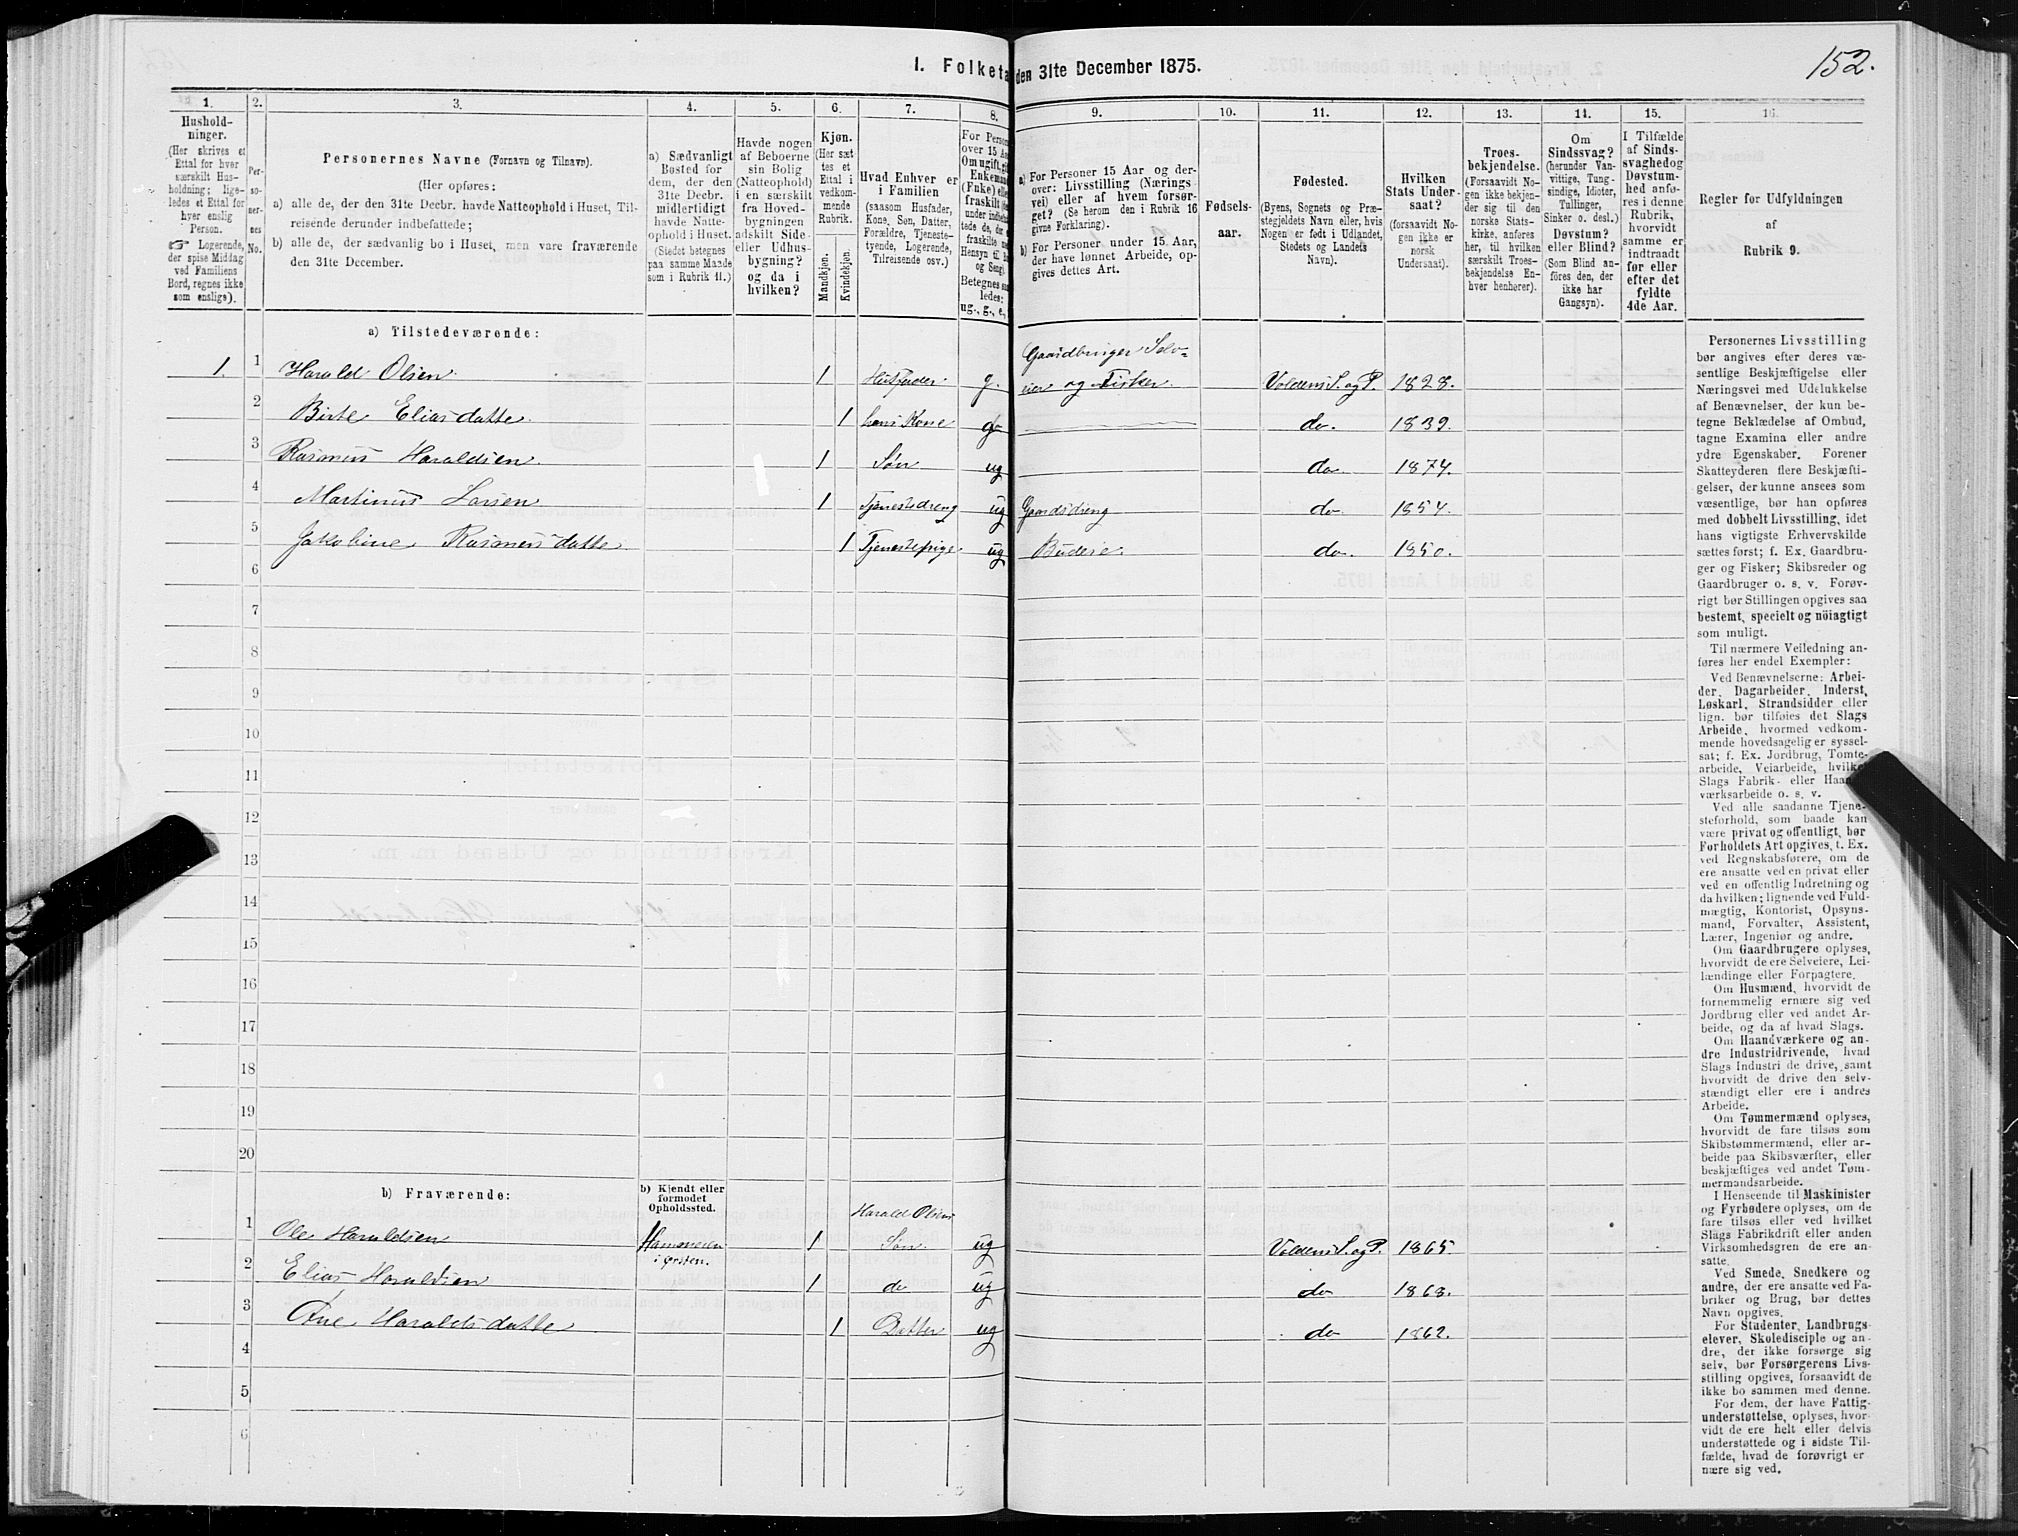 152.
1. Folketæ
den 31te December 1875.
1. 2. 3. 4. 5. 6. 7. 8. 9. 10. 11. 12. 13. 14. 15. 16.
Hushold-
ninger.
(Her skrives et
Ettal for hver
særskilt Hus-
holdning; lige-
ledes et Ettal for
hver enslig
Person.
☞ Logerende,
der spise Middag
ved Familiens
Bord, regnes ikke
som enslige).
Per-
so-
ner-
nes
No.
Personernes Navne (Fornavn og Tilnavn).
(Her opføres:
a) alle de, der den 31te Decbr. havde Natteophold i Huset, Til-
reisende derunder indbefattede;
b) alle de, der sædvanlig bo i Huset, men vare fraværende
den 31te December.
a) Sædvanligt
Bosted for
dem, der den
31te Decbr.
midlertidigt
havde Natte-
ophold i Huset.
(Stedet betegnes
paa samme Maade
som i Rubrik 11.)
Havde nogen
af Beboerne
sin Bolig
(Natteophold)
i en særskilt
fra Hoved-
bygningen
adskilt Side-
eller Udhus-
bygning?
og da i
hvilken?
Kjøn.
(Her sæt
tes et
Ettal i
vedkom-
mende
Rubrik.
Mandkjøn.
Kvindekjøn.
Hvad Enhver er
i Familien
(saasom Husfader,
Kone, Søn, Datter,
Forældre, Tjeneste-
tyende, Logerende,
Tilreisende osv.)
For Person
over 15 Aa
Om ugift, gi
Enkeman
(Fnke) elle
fraskilt (
under indbe
tede de, de
fraskilte
Hensyn til
og Seng).
Betegnes sa
ledes:
ug., g., e.,
a) For Personer 15 Aar og der-
over: Livsstilling (Nærings-
vei) eller af hvem forsør-
get? (Se herom den i Rubrik 16
givne Forklaring).
b) For Personer under 15 Aar,
der have lønnet Arbeide, op-
gives dettes Art.
Fødsels-
aar.
Fødested.
(Byens, Sognets og Præ-
stegjeldets Navn eller, hvis
Nogen er født i Udlandet,
Stedets og Landets
Navn).
Hvilken
Stats Under-
saat?
(forsaavidt No-
gen ikke er
norsk
Undersaat).
Troes-
bekjendelse.
(Forsaavidt No-
gen ikke bekjen-
der sig til den
norske Stats-
kirke, anføres
her, til hvilken
særskilt Troes-
bekjendelse En-
hver henhører).
Om
Sindssvag?
(herunder Van-
vittige, Tung-
sindige, Idioter,
Tullinger,
Sinker o. desl.)
Døvstum?
eller Blind?
(Som Blind an-
føres den, der
ikke har
Gangsyn).
I Tilfælde
af Sinds-
svaghed og
Døvstum-
hed anfø-
res i denne
Rubrik,
hvorvidt
samme er
indtraadt
før eller
efter det
fyldte
4de Aar.
Regler for Udfyldningen
af
Rubrik 9.
a) Tilstedeværende:
Gaardbruger Selv-
1. 1 Harald Olsen. 1 Husfader g. eier og Fisker. Voldens S. og P. 1828.
2 Birte Eliasdatte 1 hans Kone g do. 1839.
3 Rasmus Haraldsen. 1 Søn ug do. 1874.
4 Martinus Larsen 1 Tjenestsdreng ug Gaardsdreng do 1854.
5 Jakobine Rasmusdatte 1 Tjenestepige ug Budeie. do. 1850.
6
7
8
9
10
11
12
13
14
15
16
17
18
19
20
b) Fraværende:
b) Kjendt eller
formodet
Opholdssted.
Harald Olsens
1 Ole Haraldsen Hamneien 1 Søn. ug Voldens S. og P. 1865.
i Ørsten.
2 Elias Haraldsen 1 do ug do 1868.
3 Ane Haraldsdatte 1 Datter ug do 1862.
4
5
6
Personernes Livsstilling
bør angives efter deres væ-
sentlige Beskjæftigelse eller
Næringsvei med Udelukkelse
af Benævnelser, der kun be-
tegne Beklædelse af Ombud,
tagne Examina eller andre
ydre Egenskaber. Forener
Skatteyderen flere Beskjæfti-
gelser, der kunne ansees som
væsentlige, bør han opføres
med dobbelt Livsstilling, idet
hans vigtigste Erhvervskilde
sættes først; f. Ex. Gaardbru-
ger og Fisker; Skibsreder og
Gaardbruger o. s. v. Forøv-
rigt bør Stillingen opgives saa
bestemt, specielt og nöiagtigt
som muligt.
Til nærmere Veiledning an-
føres her endel Exempler:
Ved Benævnelserne: Arbei-
der, Dagarbeider, Inderst,
Løskarl, Strandsidder eller
lign. bør tilføies det Slags
Arbeide, hvormed vedkom-
mende hovedsagelig er syssel-
sat; f. Ex. Jordbrug, Tomte-
arbeide, Veiarbeide, hvilket
Slags Fabrik- eller Haand-
værksarbeide o. s. v.
Ved alle saadanne Tjene-
steforhold, som baade kan
være privat og offentligt, bør
Forholdets Art opgives, t. Ex.
ved Regnskabsførere, om de
ere ansatte ved en privat eller
ved en offentlig Indretning og
da hvilken; lignende ved Fuld-
mægtig, Kontorist, Opsyns-
mand, Forvalter, Assistent,
Lærer, Ingeniør og andre.
Om Gaardbrugere oplyses,
hvorvidt de ere Selveiere, Lei-
lændinge eller Forpagtere.
Om Husmænd, hvorvidt de
fornemmelig ernære sig ved
Jordbrug eller ved andet Ar-
beide, og da af hvad Slags.
Om Haandværkere og an-
dre Industridrivende, hvad
Slags Industri de drive, samt
hvorvidt de drive den selv-
stændigt eller ere i andres
Arbeide.
Om Tømmermænd oplyses,
hvorvidt de fare tilsøs som
Skibstømmermænd, eller ar-
beide paa Skibsværfter, eller
beskjæftiges ved andet Tøm-
mermandsarbeide.
I Henseende til Maskinister
og Fyrbødere oplyses, om de
fare tilsøs eller ved hvilket
Slags Fabrikdrift eller anden
Virksomhedsgren de ere an-
satte.
Ved Smede, Snedkere og
andre, der ere ansatte ved Fa-
briker og Brug, bør dettes
Navn opgives.
For Studenter, Landbrugs-
elever, Skoledisciple og an-
dre, der ikke forsørge sig
selv, bør Forsørgerens Livs-
stilling opgives, forsaavidt de
ikke bo sammen med denne.
For dem, der have Fattig-
understøttelse, oplyses, hvor-
vidt de ere helt eller delvis
understøttede og i sidste Til-
fælde, hvad de forøvrigt er-
nære sig ved.